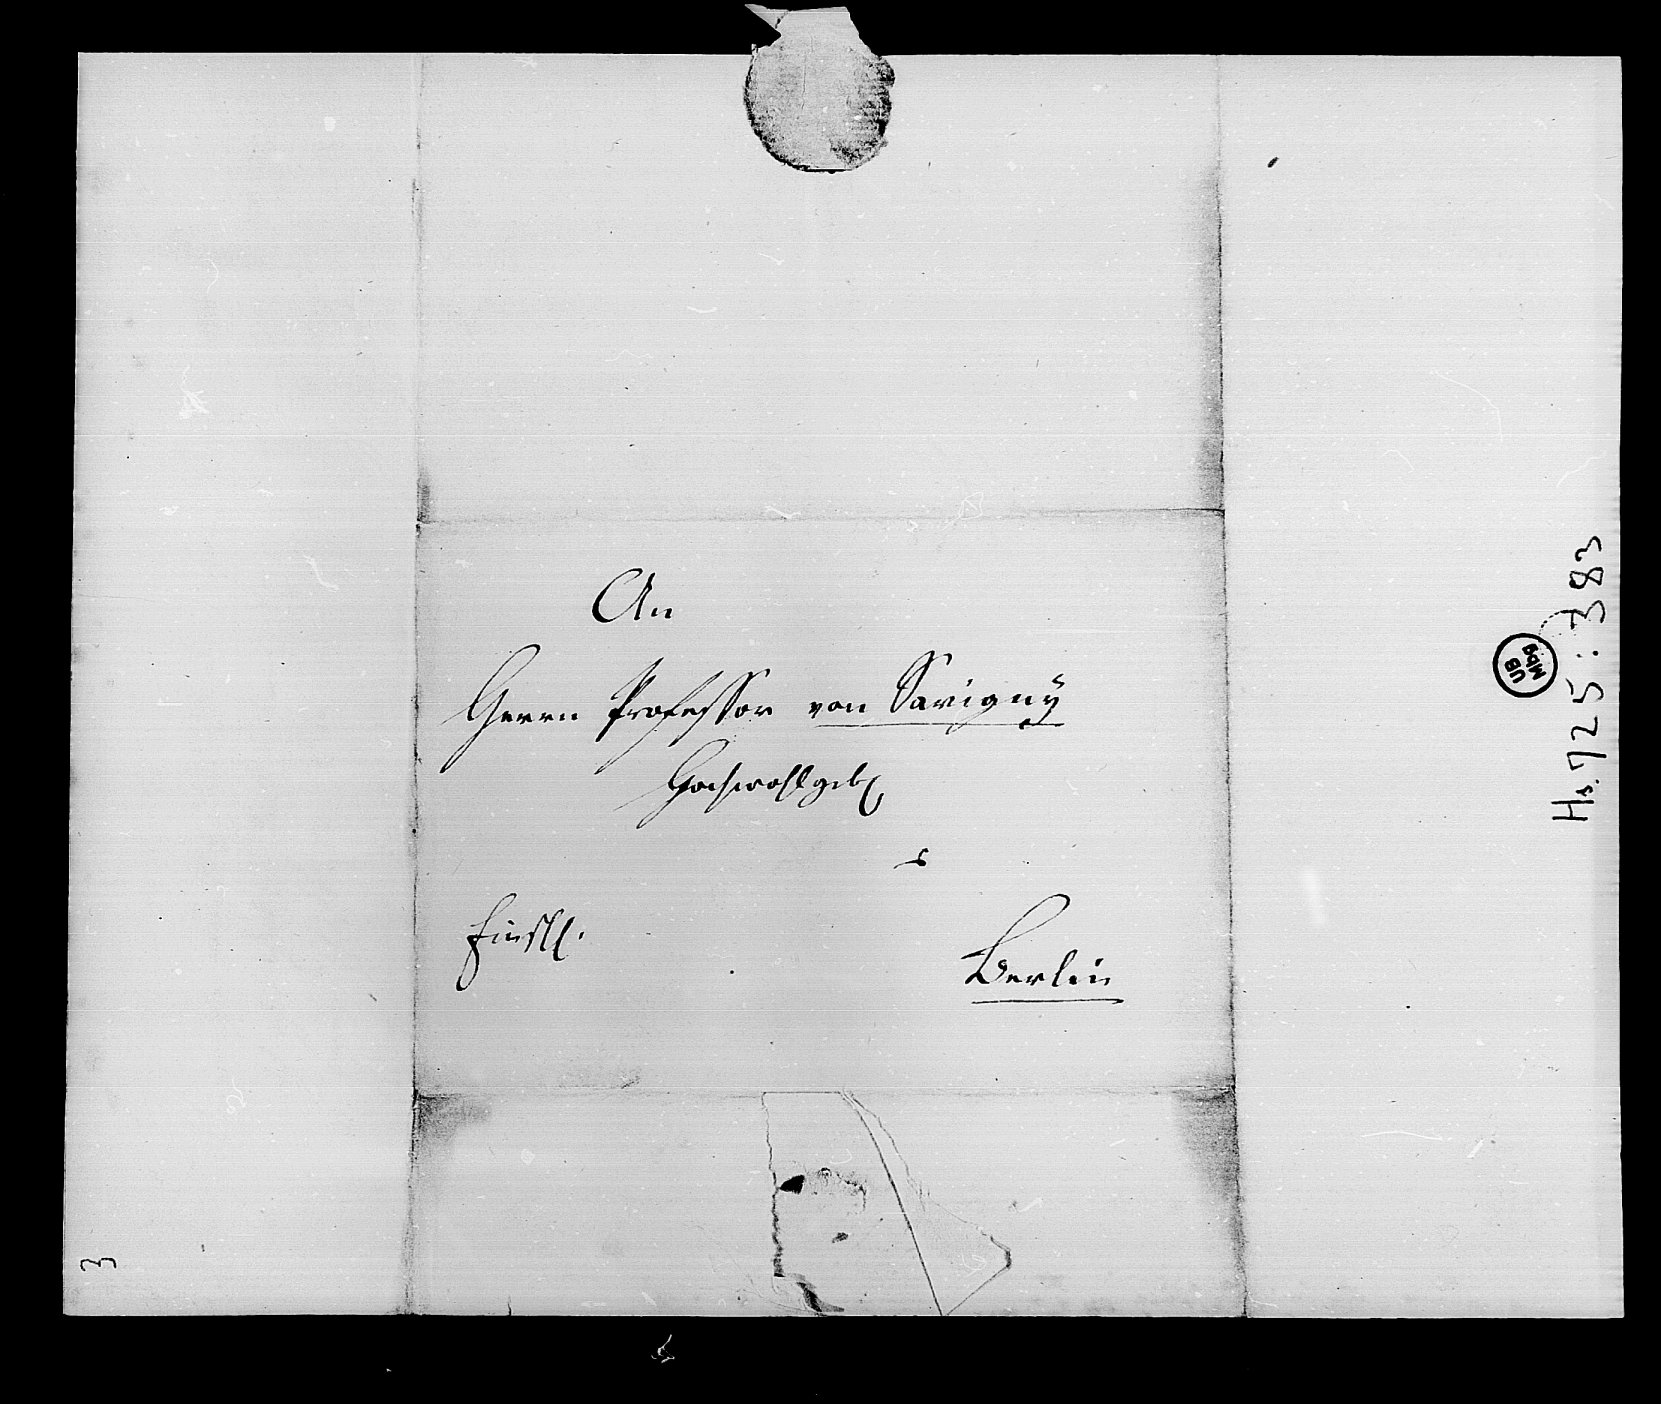 An
Herrn Professor von Savigny
Hochwohlgeb
Berlin
Hs. 725:383
UB
Mbg
3